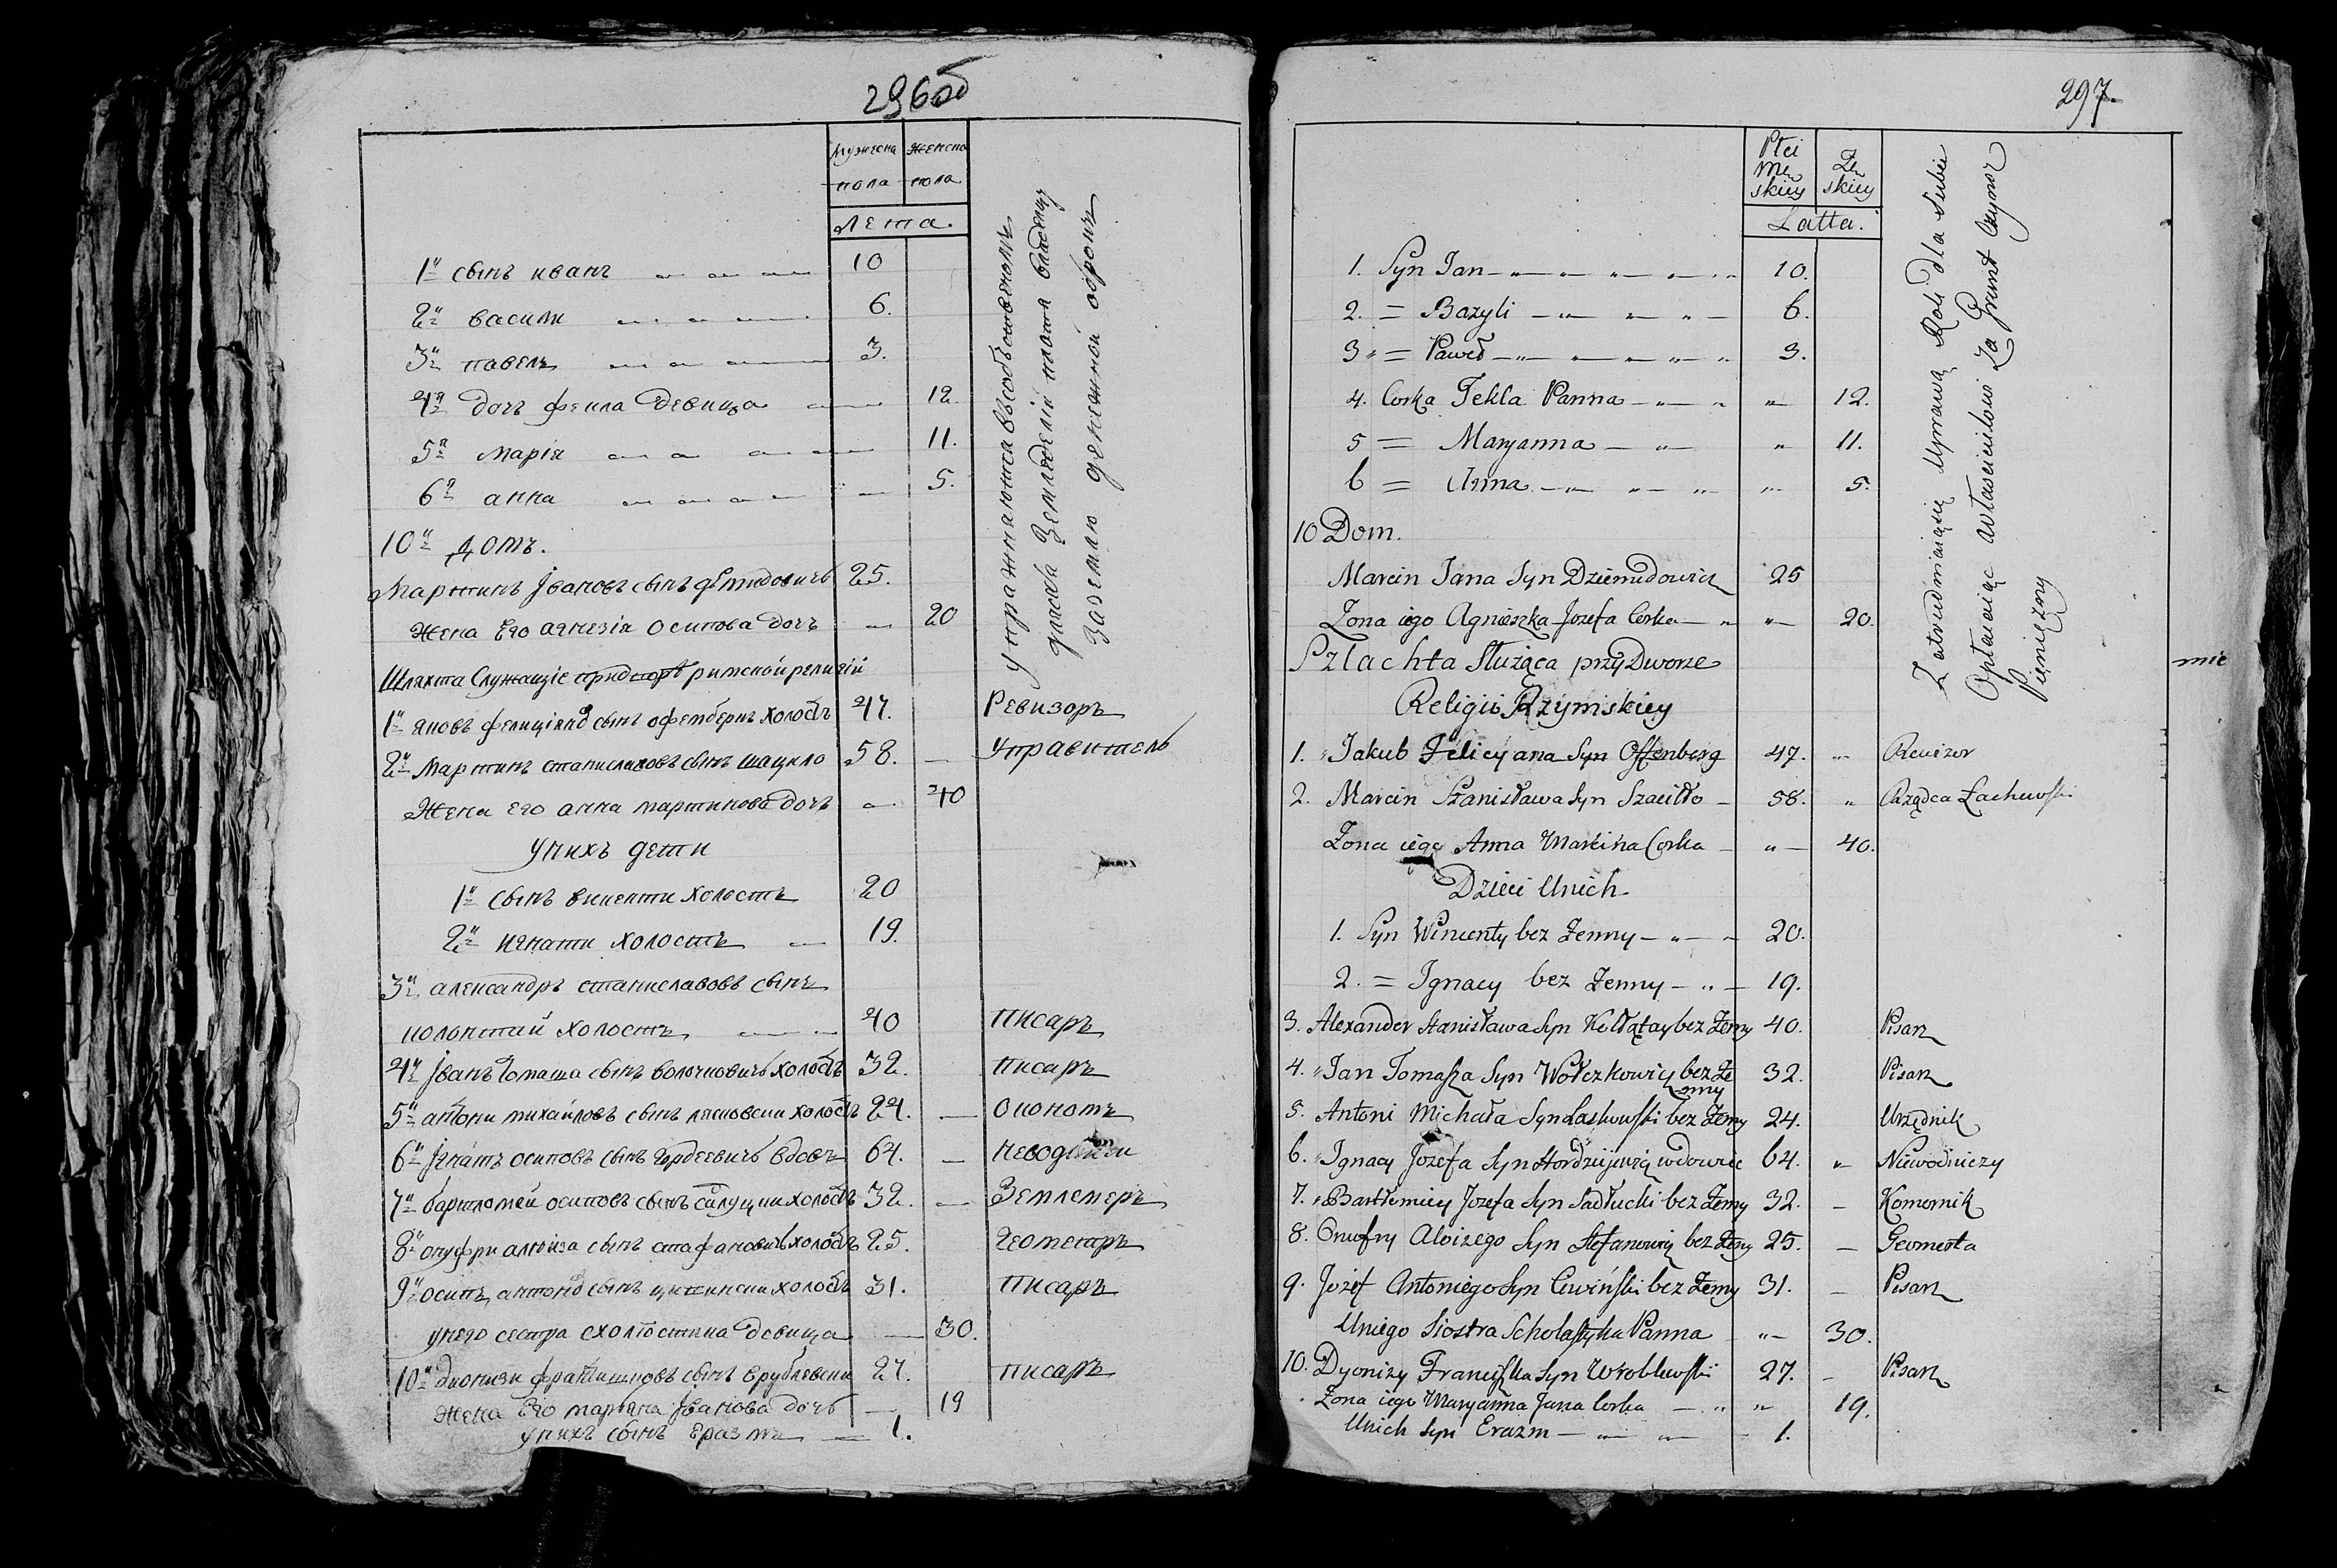 296об
Мужеска Женска
пола пола
Лета.
1й сынъ иванъ 10
2й васили 6.
3й павелъ 3.
4я дочь фекла девица 12.
5я марія 11.
6я анна 5.
упражняются въ
земледелій плотя владельцу
за землю денежной оброкъ
10й домъ.
Мартинъ Івановъ сынъ 25.
жена Его агнезія осипова дочь 20
Шляхта Служащіе при дворе римской религій
1й яковъ фелиціяна сынъ офенбергъ холостъ 47. Ревизоръ
2й Мартинъ станиславовъ сынъ шацило 58. — управитель
Жена Его анна мартинова дочь 40
у нихъ дети
1й сынъ викенти холостъ 20
2й игнати холостъ 19.
3й александръ станиславовъ сынъ
колонтай холостъ 40 писаръ
4й Іванъ Томаша сынъ волочковичъ холостъ 32. писаръ
5й антони михайловъ сынъ ласковски холостъ 24. — Окономъ
6й Игнатъ осиповъ сынъ гордеевичъ вдовъ 64. —
7й бартломей осиповъ сынъ холостъ 32. — Землемеръ
8й онуфри алоиза сынъ стафановичъ холостъ 25. геометаръ
9й осипъ антона сынъ холостъ 31. писаръ
у него сестра схоластика девица — 30.
10й дионизи сынъ врублевски 27. писаръ
жена Его марьяна Іванова дочь — 19
у нихъ сынъ Еразмъ — 1.
297.
Płci
Męskiey Żeńskiey
Latta.
1. Syn Jan 10.
2. = Bazyli 6.
3. = Paweł 3.
4. Corka Tekla Panna „ 12.
5 = Maryanna „ 11.
6 = Anna „ 5.
Zatrudniaiąsię Uprawą Roli dla siebie
Opłacaiąc właścicielowi za Grunt Czynsz
Pieniężny
10 Dom.
Marcin Jana Syn Dziemidowicz 25
Zona iego Agnieszka Jozefa Corka „ 20.
Szlachta Służąca przy Dworze
mie
Religii Rzymskiey
1. Jakub Felicyana Syn Offenberg 47. „ Rewizor
2. Marcin Stanisława Syn Szaciłło 58. „ Rządca Łachewski
Zona iego Anna Marcina Corka „ 40.
Dzieci Unich
1. Syn Wincenty bez Żenny 20.
2. = Ignacy bez Żenny 19.
3. Alexander Stanisława Syn Kołłątay bez Żenny 40. Pisarz
4. Jan Tomasza Syn Wołczkowicz bez Żenny 32. Pisarz
5. Antoni Michała Syn Laskowski bez Żenny 24. Urzędnik
6. Ignacy Jozefa Syn Hordziejewicz wdowiec 64. „ Niewodniczy
7. Bartłomiey Jozefa Syn Sadłucki bez Żenny 32. — Komornik
8. Onufry Aloizego Syn Stefanowicz bez Żenny 25. — Geometra
9. Jozef Antoniego Syn Cewiński bez Żenny 31. — Pisarz
Uniego Siostra Scholastyka Panna „ 30.
10. Dyonizy Franciszka Syn Wroblewski 27. — Pisarz
Zona iego Maryanna Jana Corka „ 19.
Unich Syn Erazm 1.